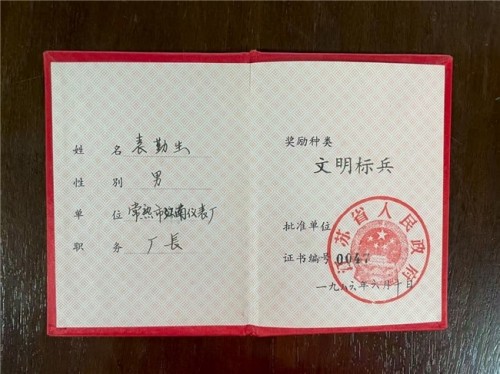 姓名 袁勤生
性别 男
单位 常熟市 仪表厂
职务 厂長
奖励种类
文明标兵
批准单位
江苏省人民政府
证书编号 0047
一九 年六月 日